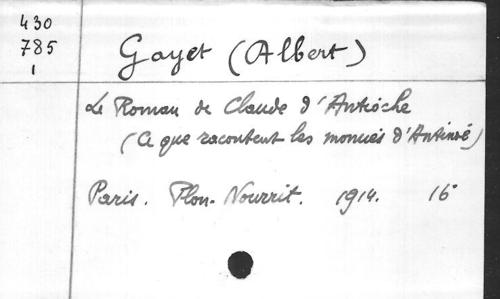 430
785
1
Gayet (Albert)
Le Roman de Claude d'Antioche
(Ce que racontent les momies d'Antinoé)
Paris. Plon-Nourrit. 1914. 16°